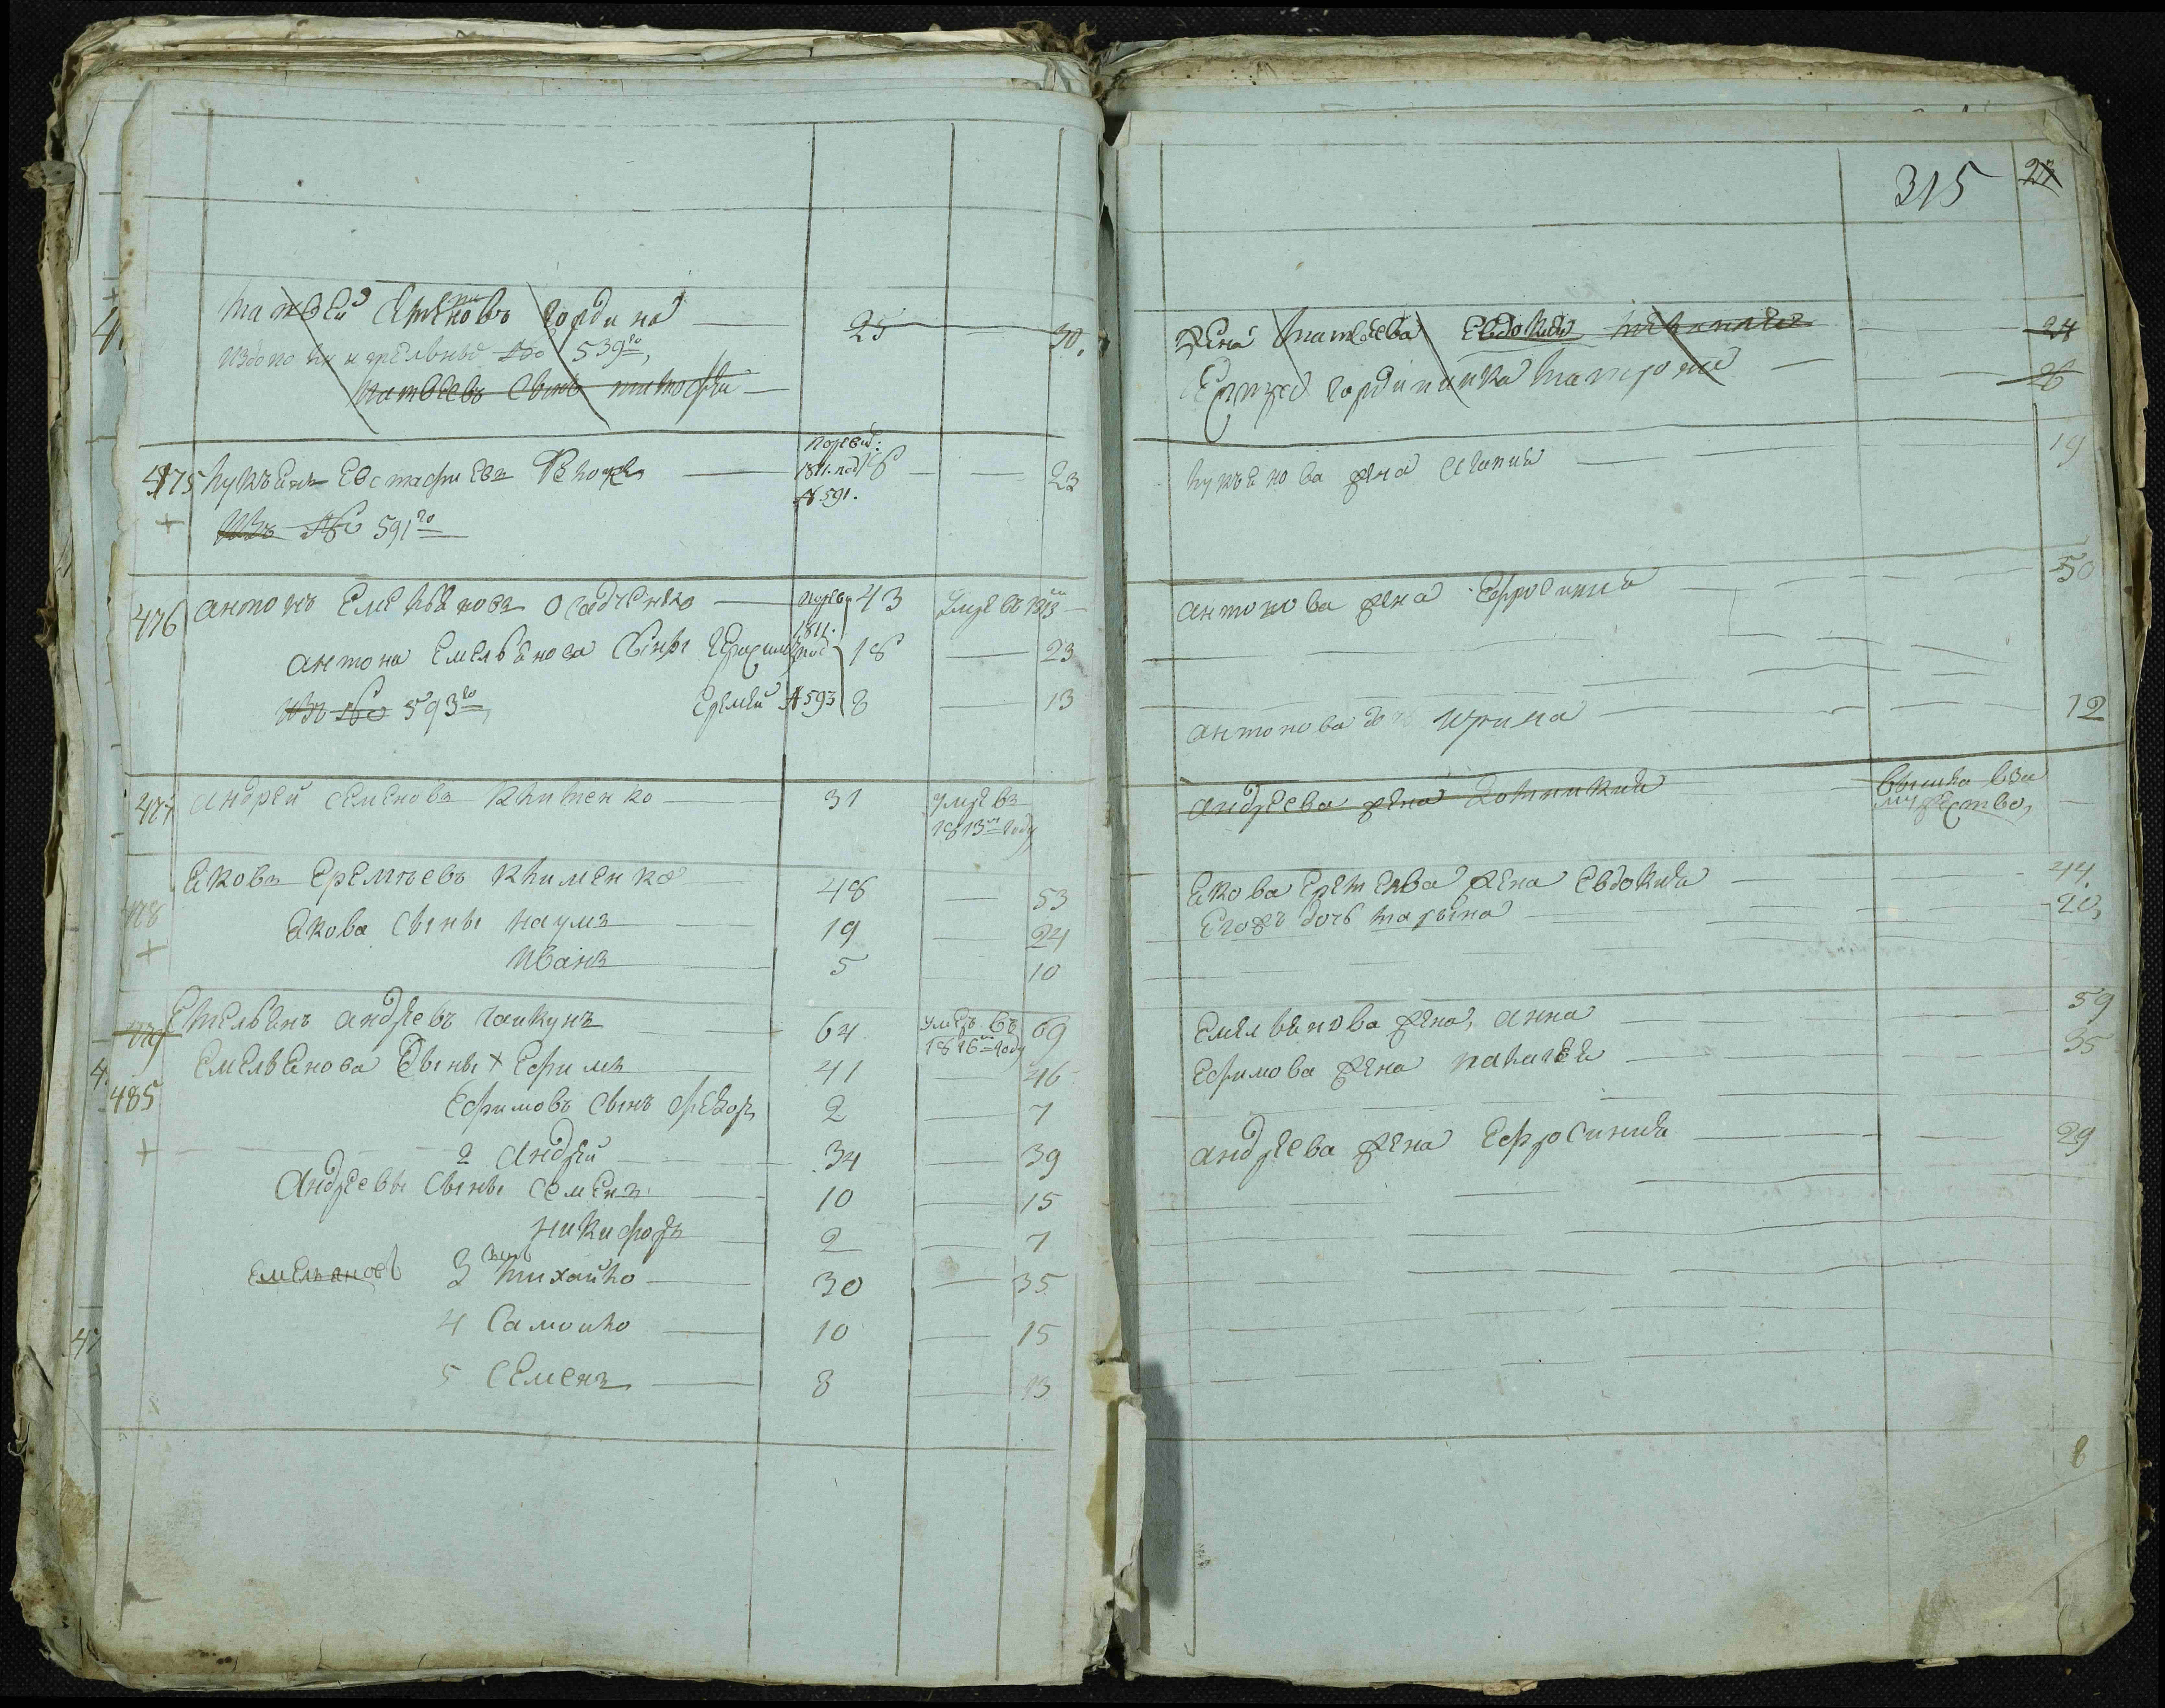 Матвей Семеновъ Гордина 25 30.
539го
Матвеевъ сынъ Тимофей
475 Лукьянъ Евстафиевъ 18 23
по реви: 1811. под № 591.
Изъ №о 591го
476 Антонъ Емельяновъ Осадченко 43 Умре въ 1813м
по реви 1811. под № 593
Антона Емельянова сынъ Герасимъ 18 23
Изъ №о 593го, Еремей 8 13
477 Андрей Семеновъ Клименко 31 умре въ 1813м году
478 Яковъ Еремеевъ Клименко 48 53
Якова сыны Наумъ 19 24
Иванъ 5 10
479 Емельянъ Андреевъ Чайкунъ 64 умеръ въ 1816м году 69
485 Емельянова сыны + Ефимъ 41 46
Ефимовъ сынъ Федоръ 2 7
2 Андрей 34 39
Андреевы сыны Семенъ 10 15
Никифоръ 2 7
Емельяновъ 3 сынъ Михайло 30 35
4 Самойло 10 15
5 Семенъ 8 13
315 23
Жена Матвеева Евдокия 24
Гординина Матрона 26
Лукьянова жена Агапия 19
Антонова жена Ефросиния 50
Антонова дочь Ирина 12
Андреева жена Домникия вышла въ замужество,
Якова Еремеева жена Евдокия 44.
Егожъ дочь Марьяна 20,
Емельянова жена, Анна 59
Ефимова жена Палагея 35
Андреева жена Ефросиния 29
8